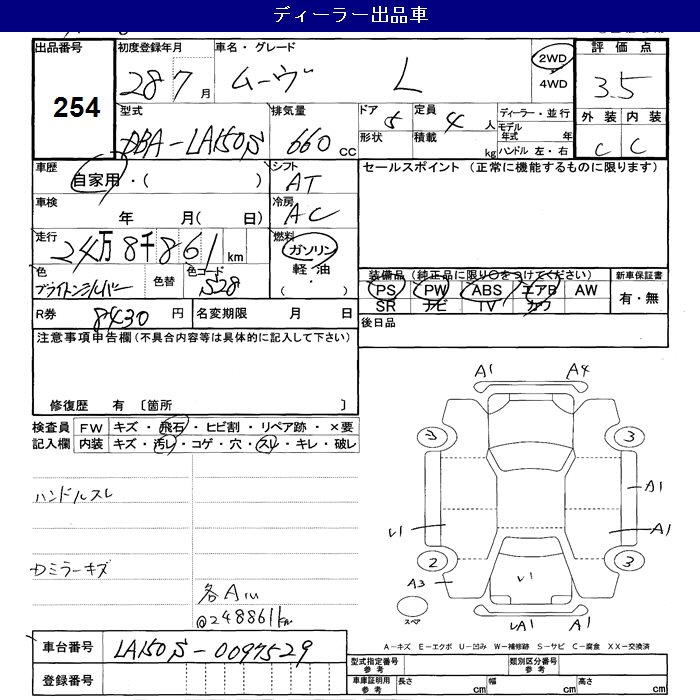 ディーラー出品車
出品番号 初度登録年月 車名・グレード 評価点
254
28 7月 ムーヴ L 2WD 3.5
4WD
外装 内装
C C
型式 排気量 ドア 定員 ディーラー・並行
DBA-LA150S 660 cc 5 4人 モデル年式 年
形状 積載 kg ハンドル 左・右
車歴 シフト セールスポイント(正常に機能するものに限ります)
自家用・( ) AT
車検 冷房
年 月( 日) AC
走行 燃料
24万8千861km ガソリン
軽油
・
( )
色 色替 色コード
ブライトンシルバー S28
装備品(純正品に限り○をつけてください) 新車保証書
PS PW ABS エアB AW 有・無
SR ナビ TV カワ
R券 8430円 名変期限 月 日 後日品
注意事項申告欄(不具合内容等は具体的に記入して下さい)
修復歴 有〔箇所 〕
検査員 FW キズ・飛石・ヒビ割・リペア跡・×要
記入欄 内装 キズ・汚レ・コゲ・穴・スレ・キレ・破レ
ハンドルスレ
ミラーキズ
各A
@248861km
A1 A4
3 3
A1
V1 A1
2 3
A3 V1
スペア
A1
A-キズ E-エクボ U-凹み W-補修跡 S-サビ C-腐食 XX-交換済
車台番号 LA150S-0097529
登録番号
型式指定番号 参考 類別区分番号 参考
車庫証明用 参考 長さ cm 幅 cm 高さ cm